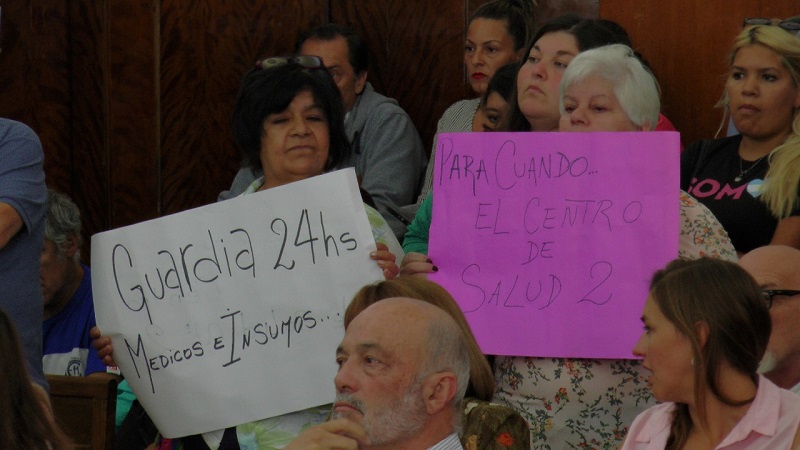 Guardia 24hs
Medicos e Insumos...
Para Cuando...
El Centro
de
Salud 2
SOM